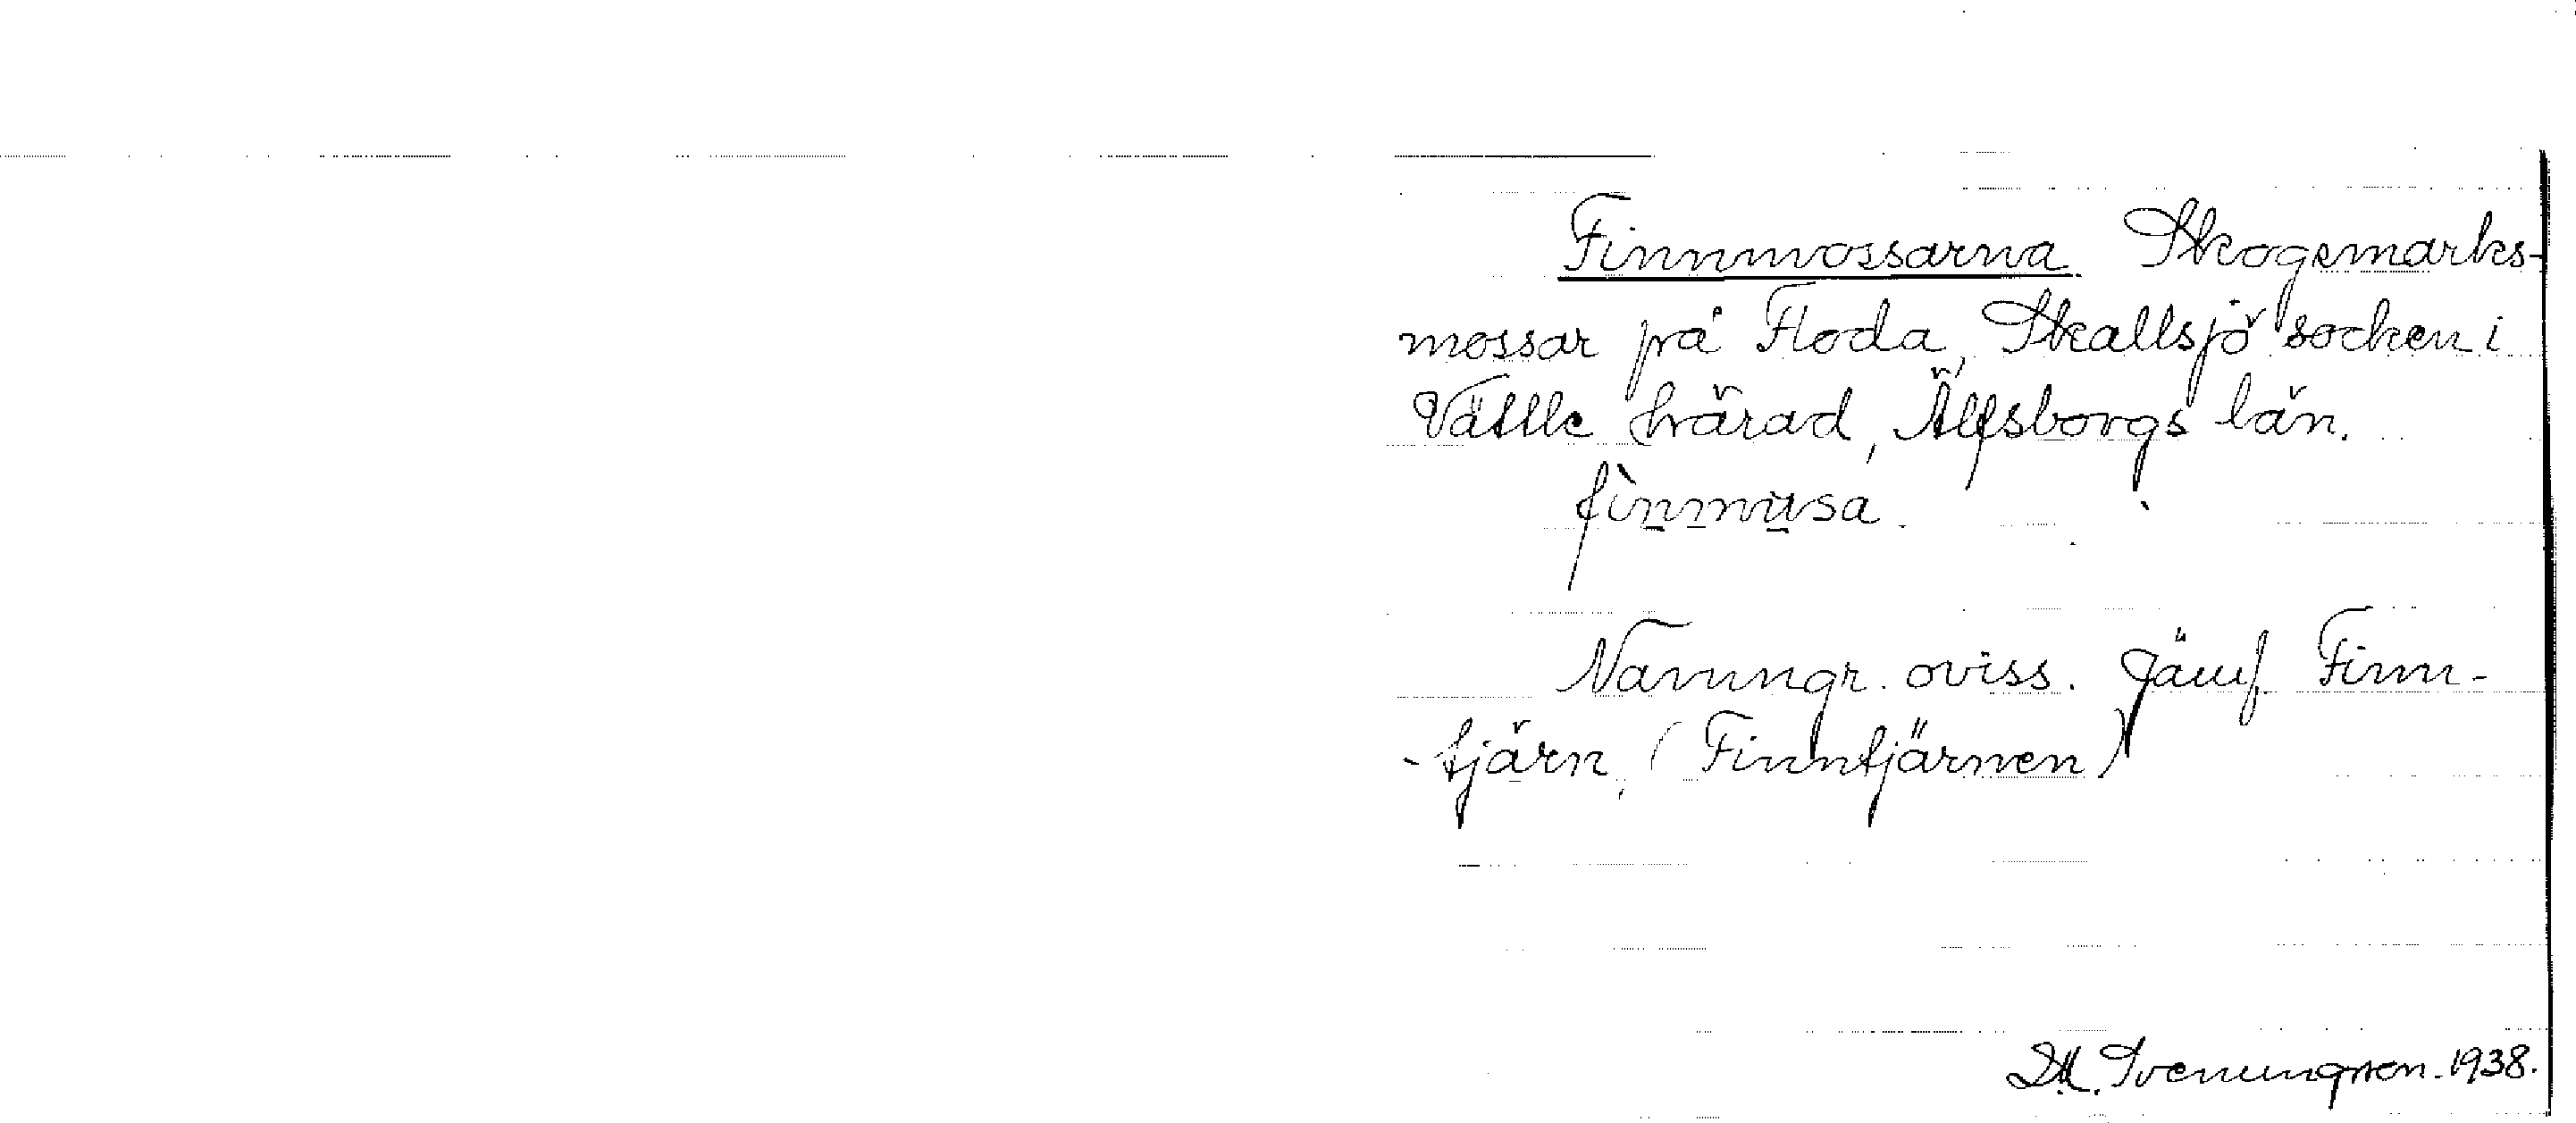 Finnmossarna Skogsmarks-
mossar på Floda, Skallsjö socken i
Vättle härad, Älfsborgs län.
fìnmusa.
Namngr. oviss. Jämf. Finn-
-tjärn, (Finntjärnen)
Svenungsson. 1938.